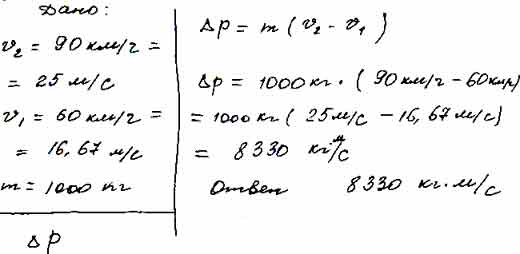 Дано:
v₂ = 90 км/г =
= 25 м/с
v₁ = 60 км/г =
= 16,67 м/с
m = 1000 кг
Δp
Δp = m (v₂ - v₁)
Δp = 1000 кг · (90 км/г - 60 км/г)
= 1000 кг (25 м/с - 16,67 м/с)
= 8330 кг м/с
Ответ 8330 кг·м/с